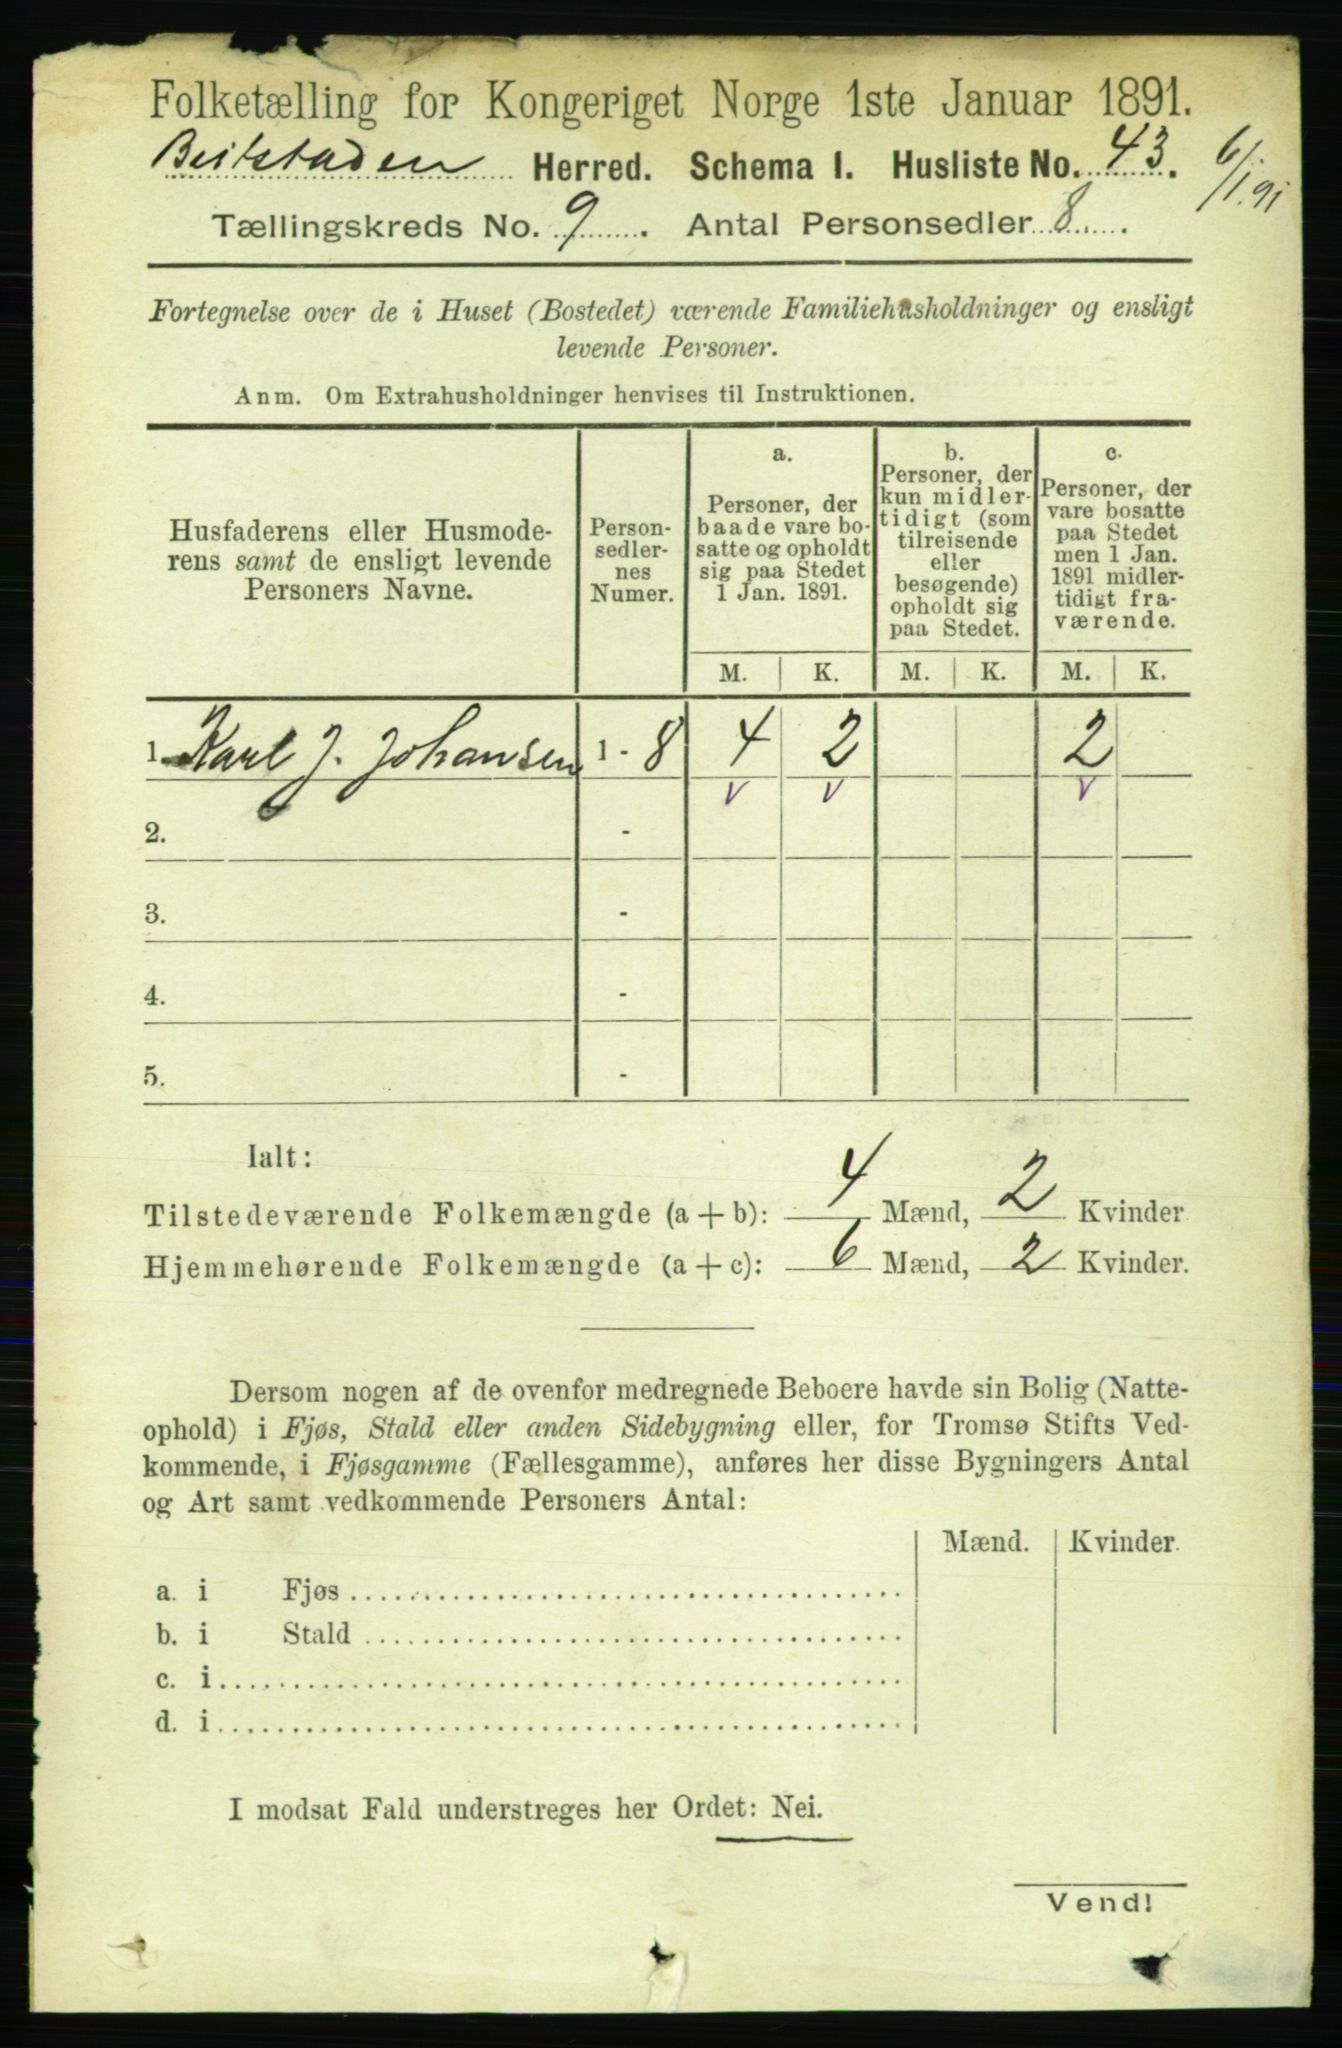 Folketælling for Kongeriget Norge 1ste Januar 1891.
Beitstaden Herred. Schema I. Husliste No. 43.
6/1.91
Tællingskreds No. 9. Antal Personsedler 8.
Fortegnelse over de i Huset (Bostedet) værende Familiehusholdninger og ensligt
levende Personer.
Anm. Om Extrahusholdninger henvises til Instruktionen.
Husfaderens eller Husmode-
rens samt de ensligt levende
Personers Navne.
Person-
sedler-
nes
Numer.
a.
Personer, der
baade vare bo-
satte og opholdt
sig paa Stedet
1 Jan. 1891.
b.
Personer, der
kun midler-
tidigt (som
tilreisende
eller
besøgende)
opholdt sig
paa Stedet.
c.
Personer, der
vare bosatte
paa Stedet
men 1 Jan.
1891 midler-
tidigt fra-
værende.
M. K. M. K. M. K.
1. Karl J. Johansen 1 - 8 4 2 2
v v v
2. -
3. -
4. -
5. -
Ialt:
Tilstedeværende Folkemængde (a + b): 4 Mænd, 2 Kvinder
Hjemmehørende Folkemængde (a + c): 6 Mænd, 2 Kvinder.
Dersom nogen af de ovenfor medregnede Beboere havde sin Bolig (Natte-
ophold) i Fjøs, Stald eller anden Sidebygning eller, for Tromsø Stifts Ved-
kommende, i Fjøsgamme (Fællesgamme), anføres her disse Bygningers Antal
og Art samt vedkommende Personers Antal:
Mænd. Kvinder.
a. i Fjøs
b. i Stald
c. i
d. i
I modsat Fald understreges her Ordet: Nei.
Vend!